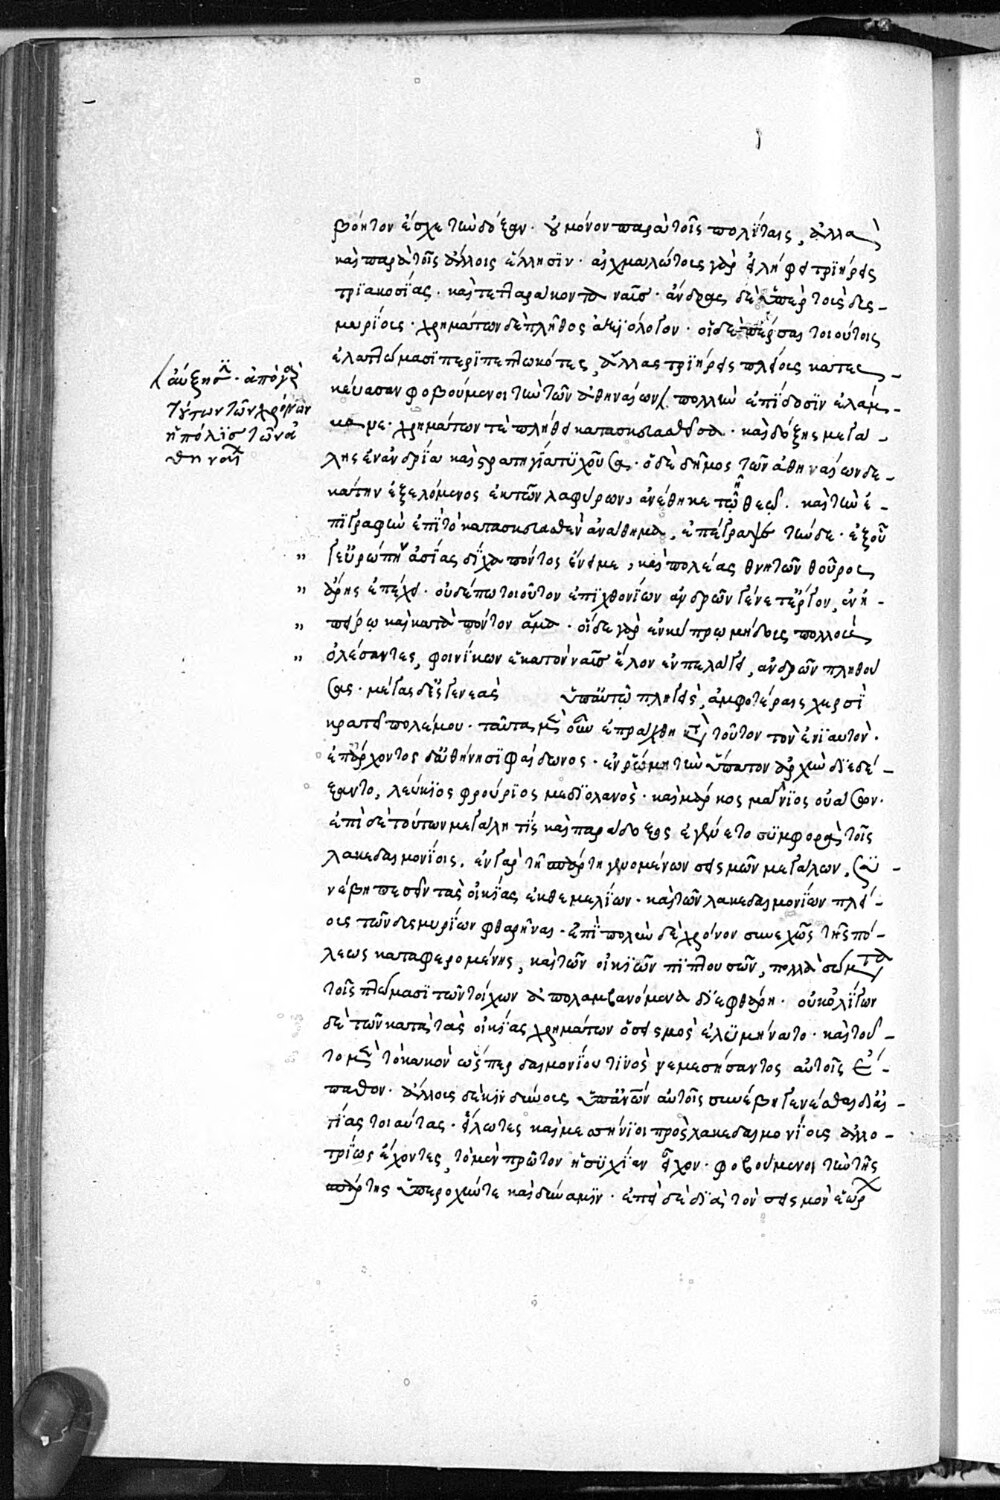 βόητον ἔσχε τὴν δόξαν· οὐ μόνον παρὰ τοῖς πολίταις, ἀλλὰ
καὶ παρὰ τοῖς ἄλλοις ἕλλησϊν· αἰχμαλώτους γὰρ εἰλήφει τριήρεις
τρϊακοσίας· καὶ τετταράκοντα ναῦς· ἄνδρας δὲ ὑπὲρ τοὺς δις-
μυρΐους· χρημάτων δὲ πλῆθος ἀξϊόλογον· οἱ δὲ πέρσαι τοιούτοις
ἐλαττώμασϊ περϊπεπτωκότες, ἄλλας τρϊήρεις πλείους κατες-
κεύασαν φοβούμενοι τὴν τῶν ἀθηναίων πολλὴν ἐπΐδοσϊν ἐλάμ-
βανε· χρημάτων τε πλήθει κατασκευασθεῖσα· καὶ δόξης μεγά-
λης ἐν ἀνδρΐα καὶ στρατηγίᾳ τυχοῦσα· ὁ δὲ δῆμος τῶν ἀθηναίων δε-
κάτην ἐξελόμενος ἐκ τῶν λαφύρων, ἀνέθηκε τῷ θεῷ· καὶ τὴν ἐ-
πϊγραφὴν ἐπὶ τὸ κατασκευασθὲν ἀνάθημα, ἐπέγραψε τήνδε· ἐξ οὗ
γ εὐρώπην ἀσίας δΐχα πόντος ἔνειμε, καὶ πόλεας θνητῶν θοῦρος
ἄρης ἐπέχει· οὐδέπω τοιοῦτον ἐπϊχθονΐων ἀνδρῶν γένετ ἔργον, ἐν ἠ-
πείρῳ καὶ κατὰ πόντον ἅμα· οἵδε γὰρ ἐν κύπρῳ μήδους πολλοὺς
ὀλέσαντες, φοινΐκων ἑκατὸν ναῦς ἕλον ἐν πελάγει, ἀνδρῶν πληθού
σας· μέγας δ ἔστενε ἀσὶς ὑπ αὐτῶν πληγεῖσ, ἀμφοτέραις χερσὶ
κράτει πολέμου· ταῦτα μὲν οὖν ἐπράχθη κατὰ τοῦτον τὸν ἐνϊαυτὸν·
ἐπ ἄρχοντος δ ἀθήνησϊ φαίδωνος· ἐν ῥώμῃ τὴν ὕπατον ἀρχὴν δϊεδέ-
ξαντο, λεύκϊος φρούρϊος μεδϊολανὸς· καὶ μάρκος μανΐϊος οὐάσων·
ἐπὶ δὲ τούτων μεγάλη τὶς καὶ παράδοξος ἐγένετο συμφορὰ τοῖς
λακεδαιμονΐοις· ἐν γὰρ τῇ σπάρτῃ γενομένων σεισμῶν μεγάλων, συ-
νέβη πεσεῖν τὰς οἰκίας ἐκ θεμελίων· καὶ τῶν λακεδαιμονΐων πλεί-
ους τῶν δισμυρΐων φθαρῆναι· ἐπὶ πολὺν δὲ χρόνον συνεχῶς τῆς πό-
λεως καταφερομένης, καὶ τῶν οἰκϊῶν πϊπτουσῶν, πολλὰ σώματα
τοῖς πτώμασϊ τῶν τοίχων ἀπολαμβανόμενα δϊεφθάρη· οὐκ ὀλΐγον
δὲ τῶν κατὰ τὰς οἰκίας χρημάτων ὁ σεισμὸς ἐλυμήνατο· καὶ τοῦ-
το μὲν τὸ κακὸν ὥσπερ δαιμονΐου τϊνὸς νεμεσήσαντος αὐτοῖς ἔ-
παθον· ἄλλους δὲ κϊνδύνους ὑπ ἀνθρώπων αὐτοῖς συνέβη γενέσθαι δι αἰ-
τΐας τοιαύτας· εἵλωτες καὶ μεσσήνϊοι πρὸς λακεδαιμονΐους ἀλλο-
τρΐως ἔχοντες, τὸ μὲν πρῶτον ἡσυχΐαν εἶχον· φοβούμενοι τὴν τῆς
σπάρτης ὑπεροχήν τε καὶ δύναμϊν· ἐπεὶ δὲ δϊὰ τὸν σεισμὸν ἑώρ
αὔξησιν· ἀπὸ γὰρ
τούτων τῶν χρόνων
ἡ πόλϊς τῶν ἀ
θηναίων